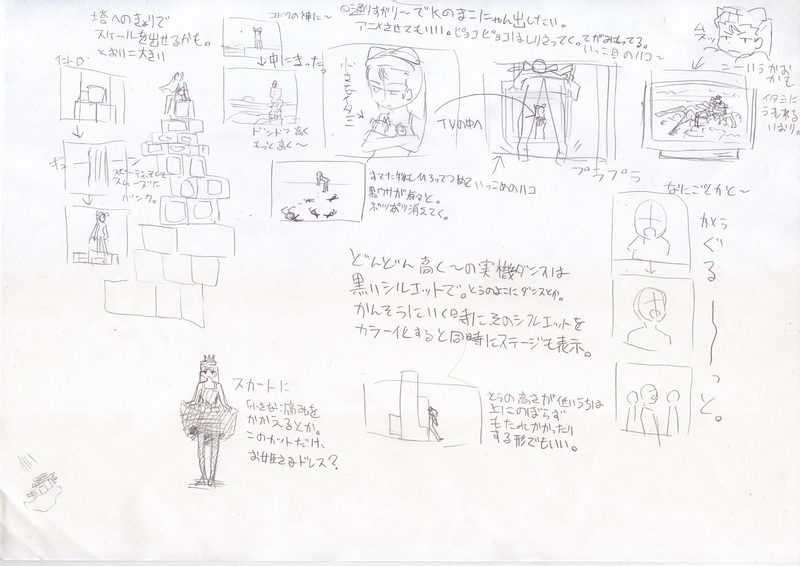 塔へのきょりで
スケールを出せるかも。
とおい=大きい
イントロ
コドクの神に〜
→中にまった
ドンドン高く
もっと高く〜
小さなイタミ
@通りすがり〜でKのまこにゃん出したい。
アニメさせてもいい。ピョコピョコはしりさってく。
いっこ目のハコ〜
TVの中へ
いっこめのハコ
プラプラ
ムスッ
こーいうかお
かて
イタミに
うもれる
いおり。
スムーズに
バンク。
黒ウサがねると。
ポツポツ消えてく。
なにごとかと〜
カメラ
ぐる
〜
っと。
どんどん高く〜の実機ダンスは
黒いシルエットで。とうのよこにダンスとか。
かんそうにいく時に、そのシルエットを
カラー化すると同時にステージも表示。
スカートに
小さな痛みを
かかえるとか。
このカットだけ、
お姫さまドレス?
とうの高さが低いうちは
上にのぼらず
もたれかかったり
する形でもいい。